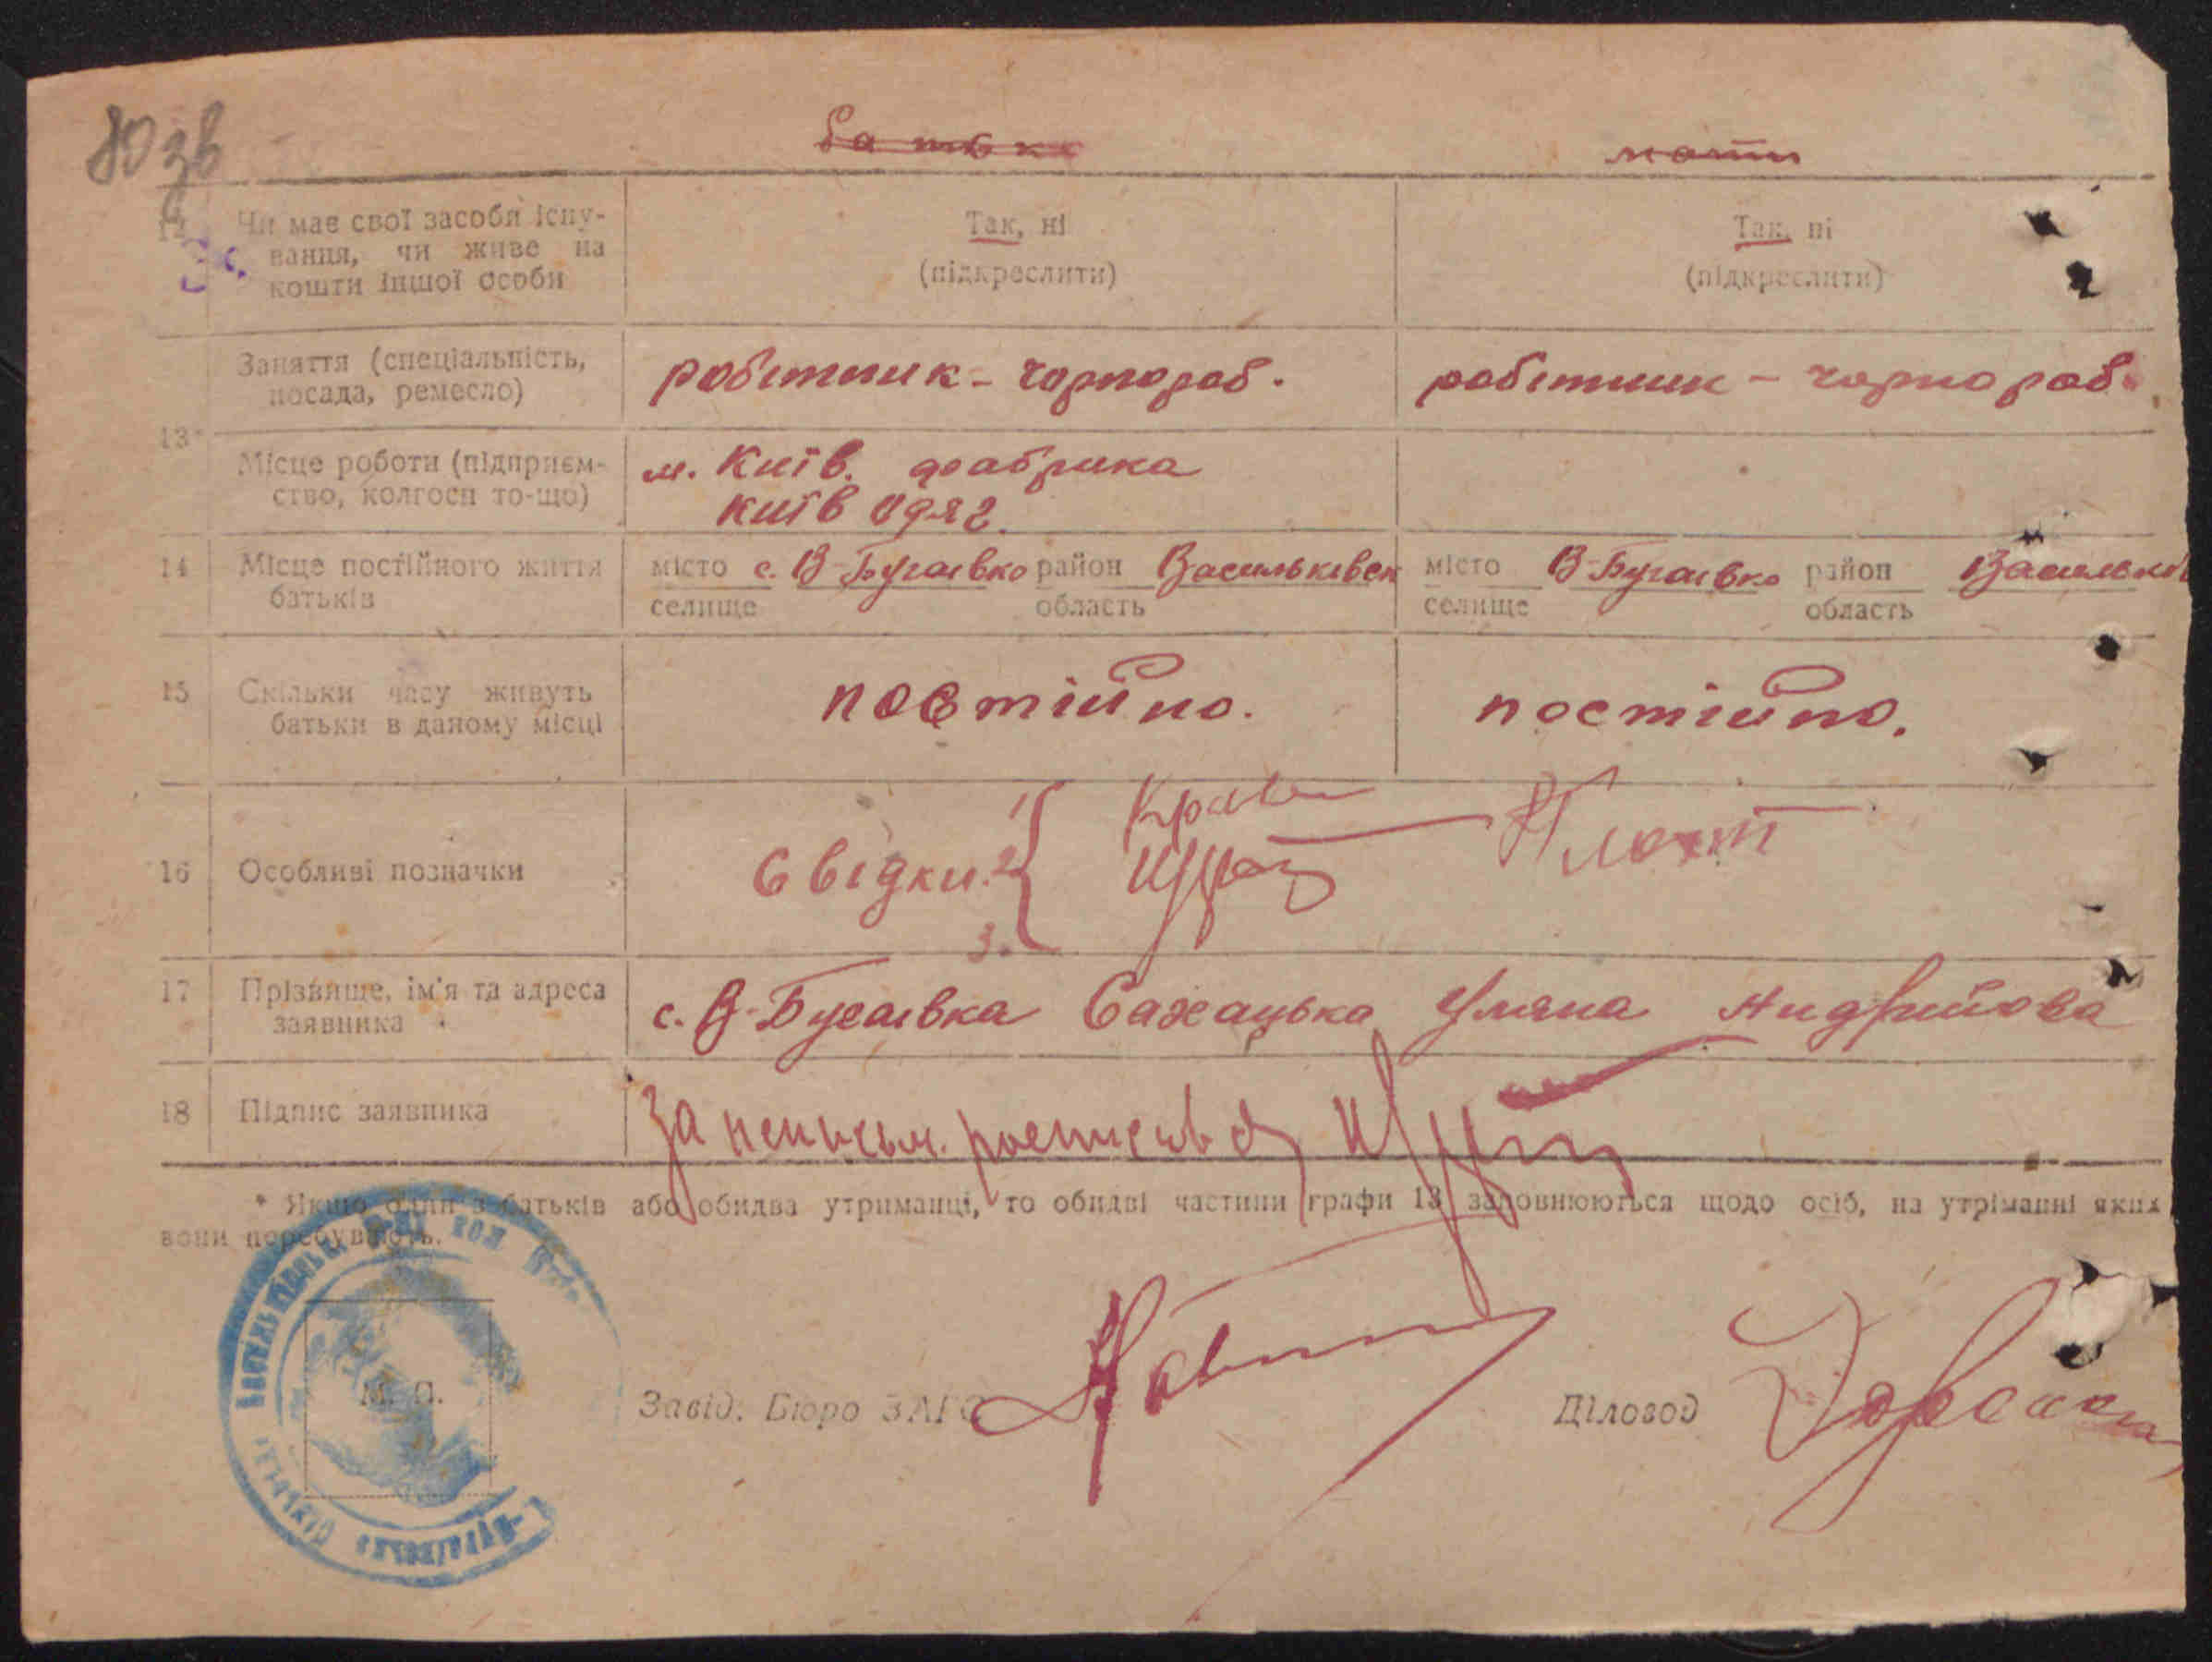 80 зв
батько
мати
12
Чи має свої засоби існу-
вання, чи живе на
кошти іншої особи
Так, ні
(підкреслити)
Так, ні
(підкреслити)
Заняття (спеціальність,
посада, ремесло)
робітник - чорнороб.
робітник - чорнороб.
13*
Місце роботи (підприєм-
ство, колгосп то-що)
м. Київ. фабрика
Київ одяг.
14
Місце постійного життя
батьків
місто с. В-Бугаївко район Васильківськ
селище область
місто В-Бугаївко район Васильків
селище область
15
Скільки часу живуть
батьки в даному місці
постійно.
постійно.
16
Особливі позначки
Свідки.
1
2
3.
17
Прізвище, ім'я та адреса
заявника
с. В-Бугаївка Сахацька Уляна Андрийова
18
Підпис заявника
За неписьм.
* Якщо один з батьків або обидва утриманці, то обидві частини графи 13 заповнюються щодо осіб, на утриманні яких
вони перебувають.
М. П.
Завід. Бюро ЗАГС
Діловод